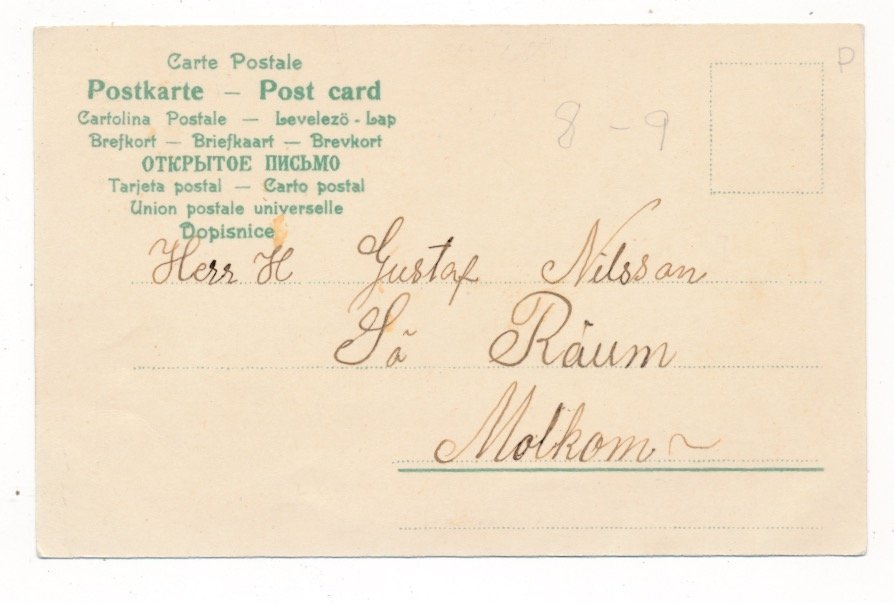 Carte Postale
Postkarte — Post card
Cartolina Postale — Levelezö-Lap
Brefkort — Briefkaart — Brevkort
ОТКРЫТОЕ ПИСЬМО
Tarjeta postal — Carto postal
Union postale universelle
Dopisnice
P
8-9
Herr H Gustaf Nilsson
Sö Räum
Molkom